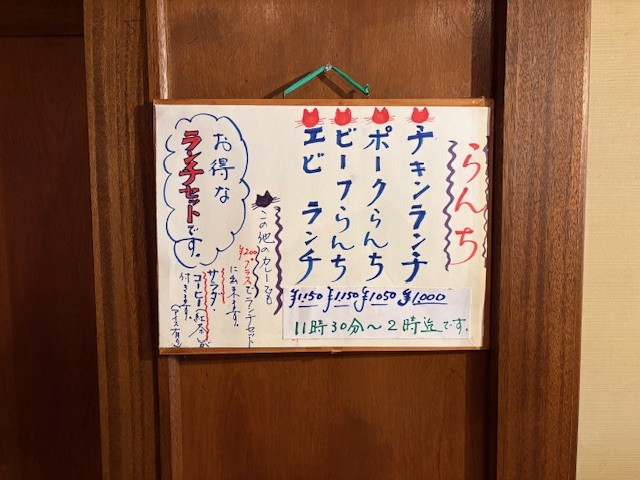 らんち
チキンランチ
ポークらんち
ビーフらんち
エビ ランチ
¥1150 ¥1150 ¥1050 ¥1000
11時30分〜2時迄です。
この他のカレーでも
¥200プラスでランチセット
に出来ます。
サラダ・
コーヒー(紅茶)が
付きます。(アイス有り)
お得な
ランチセットです。